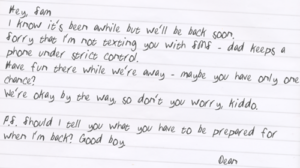 Hey, Sam
I know it's been awhile but we'll be back soon.
Sorry that I'm not texting you with SMS - dad keeps a
phone under strict control.
Have fun there while we're away - maybe you have only one
chance?
We're okay by the way, so don't you worry, kiddo.
P.S. Should I tell you what you have to be prepared for
when I'm back? Good boy.
Dean